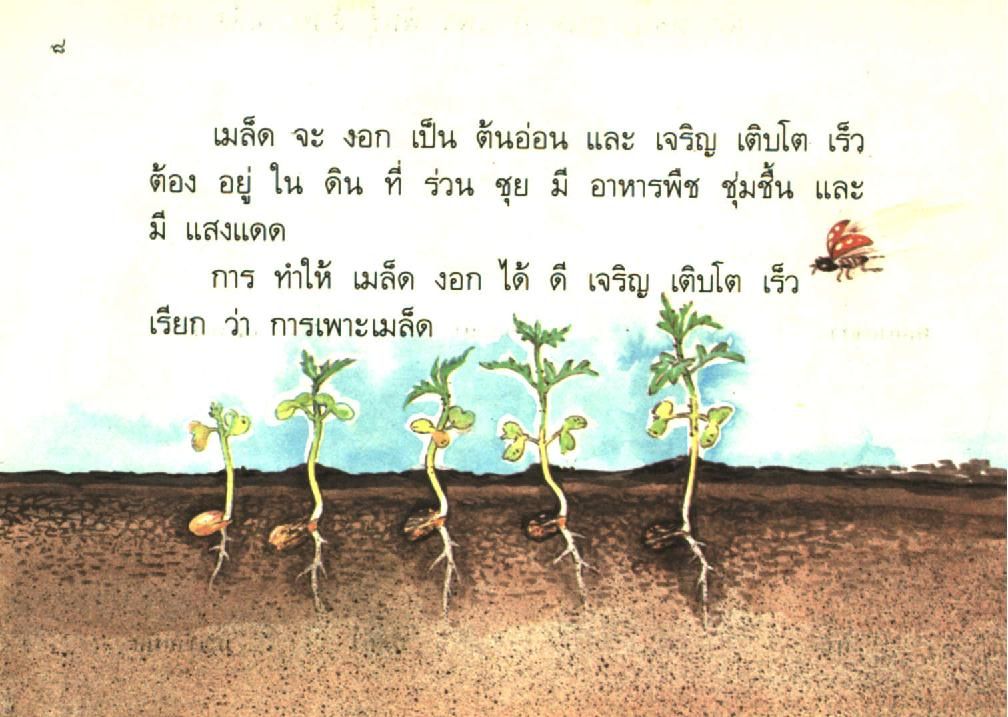 ๘
เมล็ด จะ งอก เป็น ต้นอ่อน และ เจริญ เติบโต เร็ว
ต้อง อยู่ ใน ดิน ที่ ร่วน ซุย มี อาหารพืช ชุ่มชื้น และ
มี แสงแดด
การ ทำให้ เมล็ด งอก ได้ ดี เจริญ เติบโต เร็ว
เรียก ว่า การเพาะเมล็ด